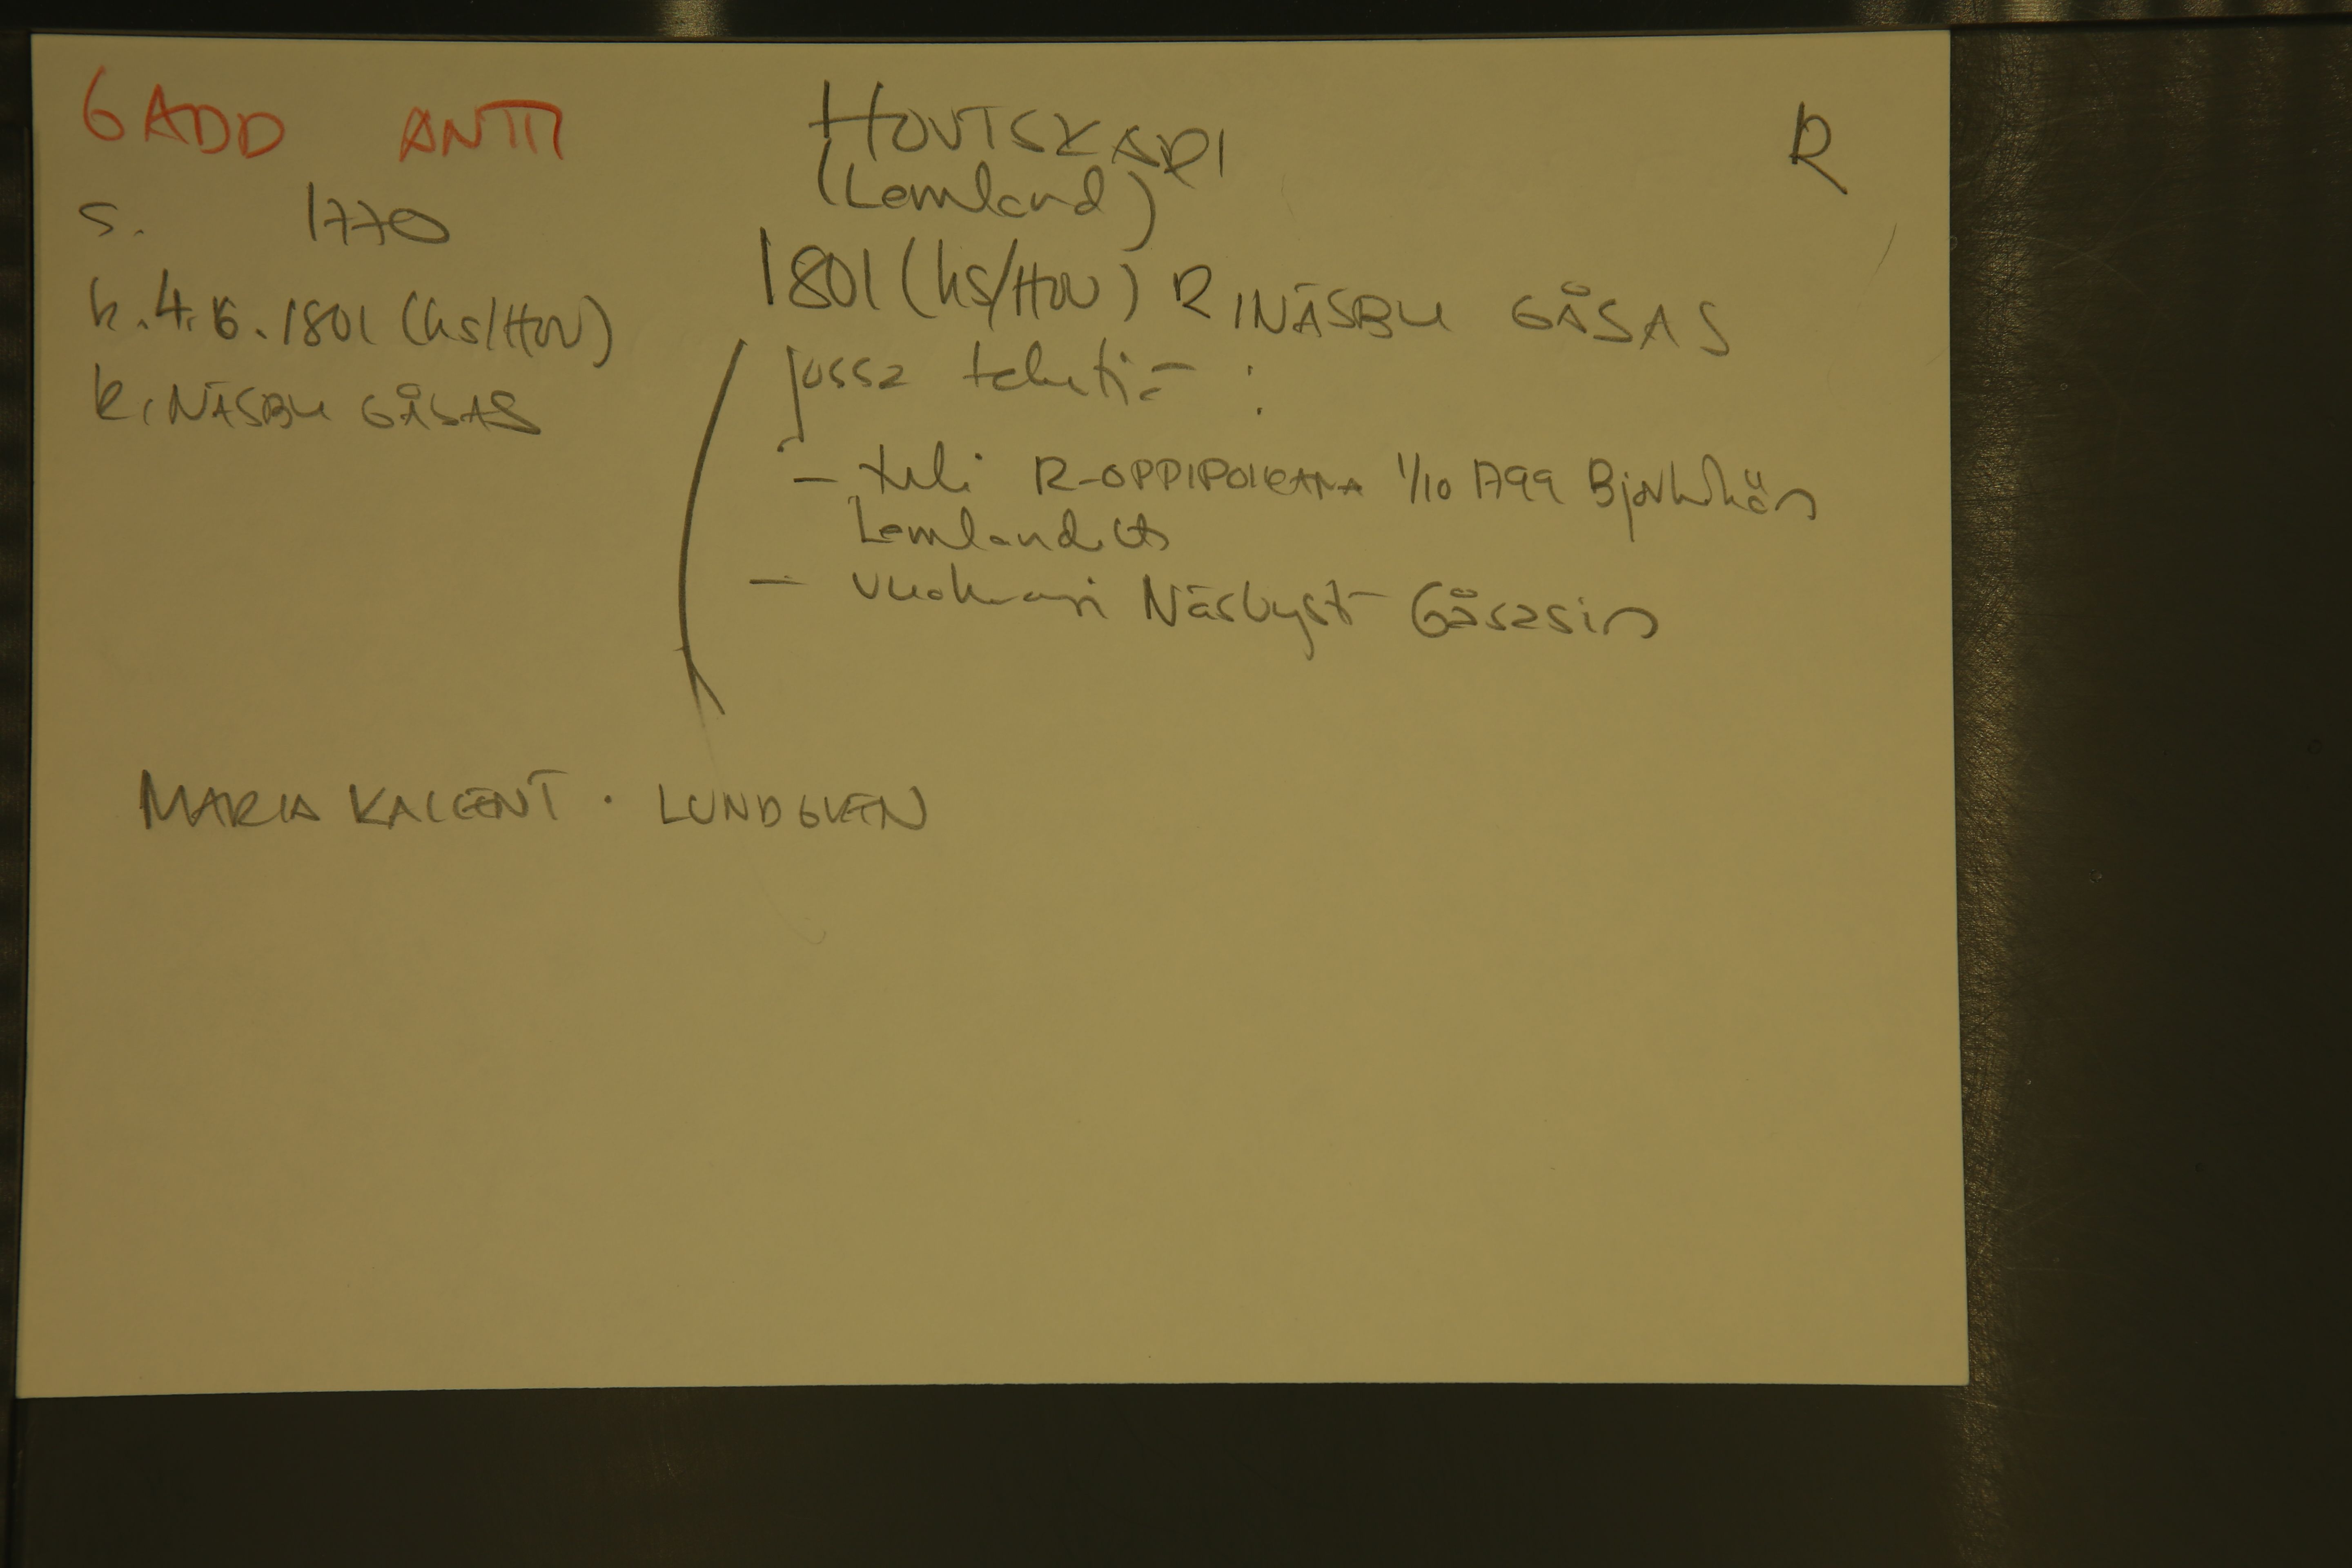 GADD ANTTI
HOUTSKARI
R
(Lemland)
s. 1770
k. 4.6.1801 (hs/HOU)
R, NÄSBY GÅSAS
1801 (hs/HOU) R, NÄSBY GÅSAS
jossa
- tuli R-OPPIPOIKANA 1/10 1799 Björkkön
Lemlandista
- Näsbyst Gåsasin
MARIA KALEENT. LUNDGREN